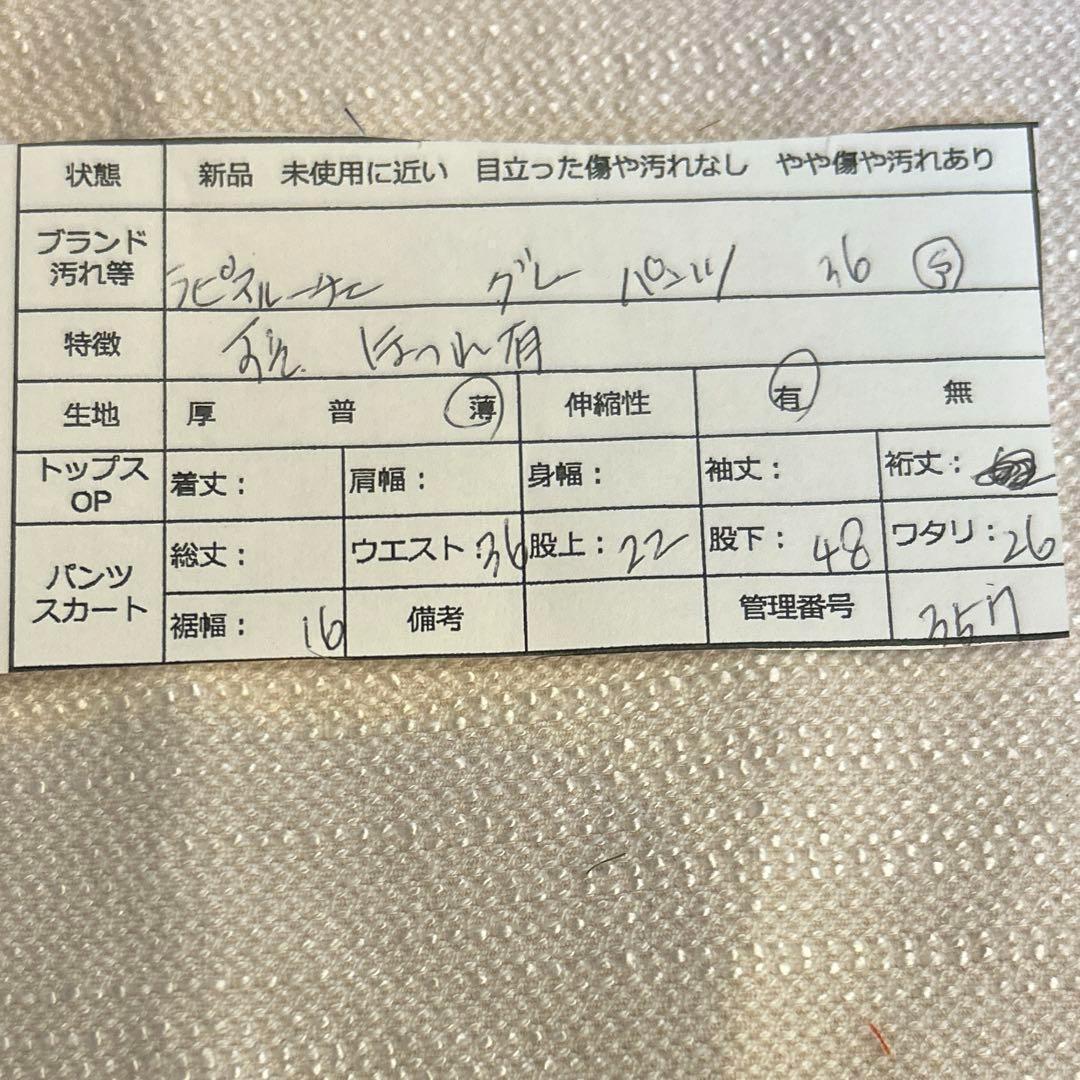 状態 新品 未使用に近い 目立った傷や汚れなし やや傷や汚れあり
ブランド
汚れ等 ラピスルーチェ グレー パンツ 36 S
特徴 ほつれ有
生地 厚 普 薄 伸縮性 有 無
トップス
OP 着丈: 肩幅: 身幅: 袖丈: 裄丈:
パンツ
スカート 総丈: ウエスト:36 股上:22 股下:48 ワタリ:26
裾幅:16 備考 管理番号